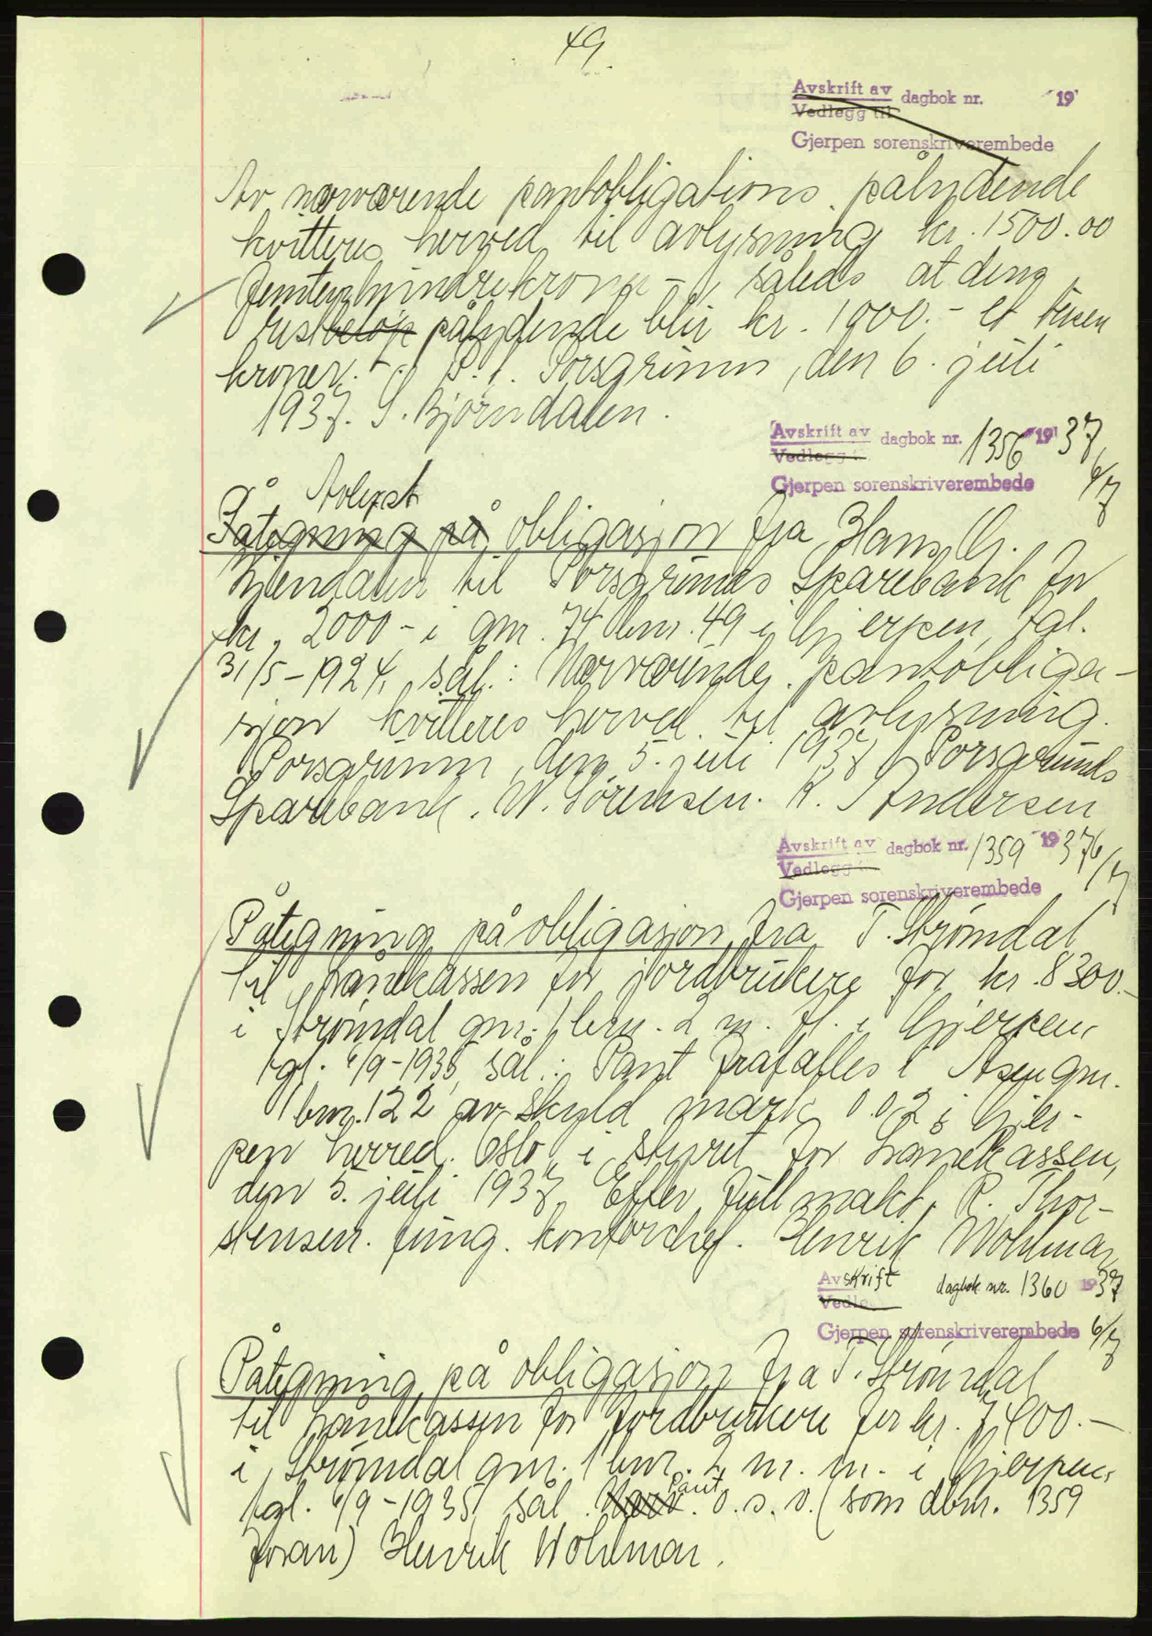 49.
Avskrift av
Vedlegg til dagbok nr. 19
Gjerpen sorenskriverembede
Av nærværende pantobligations pålydende
kvitteres herved til avlysning kr. 1500.00
femtenhundrekroner - således at dens
restbeløp pålydende blir kr. 1000.- et tusen
kroner. - P.t. Porsgrunn, den 6. juli
1937. S. Bjørndalen.
Avskrift av
Vedlegg dagbok nr. 1356 1937
Gjerpen sorenskriverembede 6/7
Avlyst
Påtegning på obligasjon fra Hans G.
til Porsgrunds Sparebank for
kr. 2000 - i gnr. 74 bnr. 49 i Gjerpen, tgl.
31/5-1924, sål.: Nærværende pantobliga-
sjon kvitteres herved til avlysning.
Porsgrunn, den 5. juli 1937. Porsgrunds
Sparebank. W. Sørensen. K. Andersen
Avskrift av
Vedlegg dagbok nr. 1359 1937 6/7
Gjerpen sorenskriverembede
Påtegning på obligasjon fra T. Strømdal
til Lånekassen for jordbrukere for kr. 8300.-
i Strømdal gnr. 1 bnr. 2 m. fl. i Gjerpen,
tgl. 6/9-1935, sål.: Pant frafalles i gnr.
1 bnr. 122 av skyld mark 0.02 i Gjer-
pen herred. Oslo, i styret for Lånekassen,
den 5. juli 1937. Efter fullmakt, R. Thor-
stensen. fung. kontorchef. Henrik Wohlmar
Avskrift dagbok nr. 1360 1937
Gjerpen sorenskriverembede 6/7
Påtegning på obligasjon fra T. Strømdal
til Lånekassen for Jordbrukere for kr. 7400.-
i Strømdal gnr. 1 bnr. 2 m. m. i Gjerpen,
tgl. 6/9-1935, sål. Pant o. s. v. (som dbnr. 1359
foran) Henrik Wohlmar.